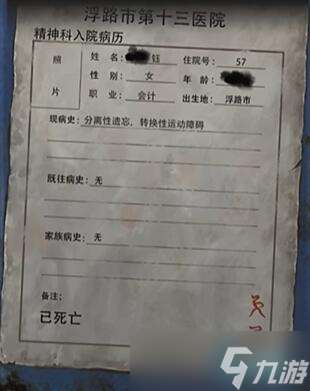 浮路市第十三医院
精神科入院病历
照片
姓名: 钰 住院号: 57
性别: 女 年龄:
职业: 会计 出生地: 浮路市
现病史: 分离性遗忘，转换性运动障碍
既往病史: 无
家族病史: 无
备注:
已死亡
九游